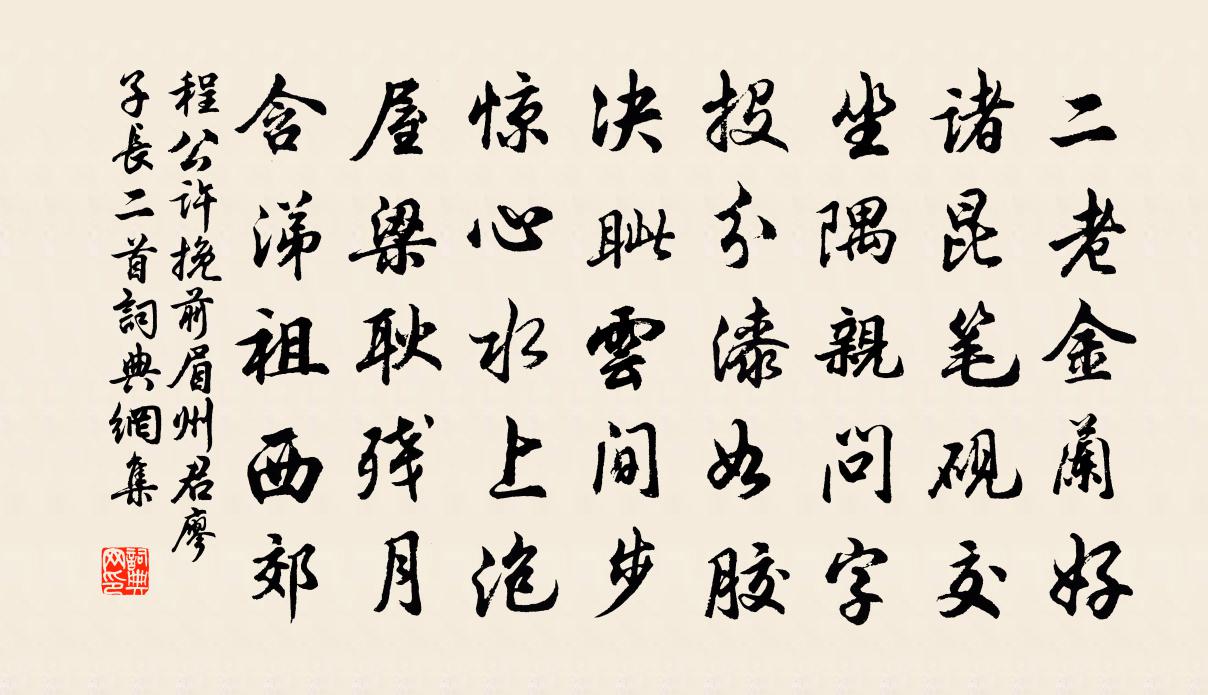 二老金蘭好
诸昆笔砚交
坐隅親问字
投分漆如胶
决眦雲间步
惊心水上泡
屋梁耿残月
含涕祖西郊
程公许挽前眉州君廖
子長二首詞典網集
詞典网印